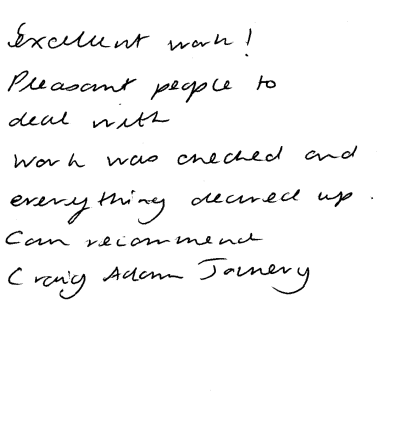 Excellent work!
Pleasant people to
deal with
Work was checked and
everything cleared up.
Can recommend
Craig Adam Joinery